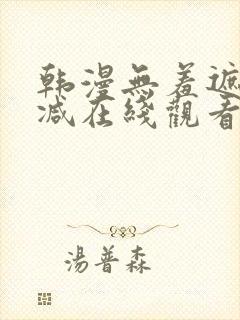 韩漫無羞遮
减在綫觀看
湯普森